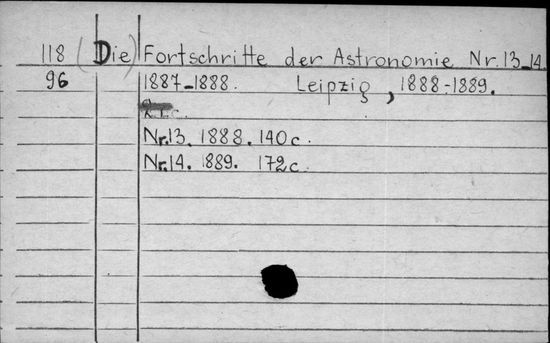 118 (Die) Fortschritte der Astronomie Nr.13-14.
96 1887-1888. Leipzig, 1888-1889.
Nr.13. 1888. 140c.
Nr.14. 1889. 172c.